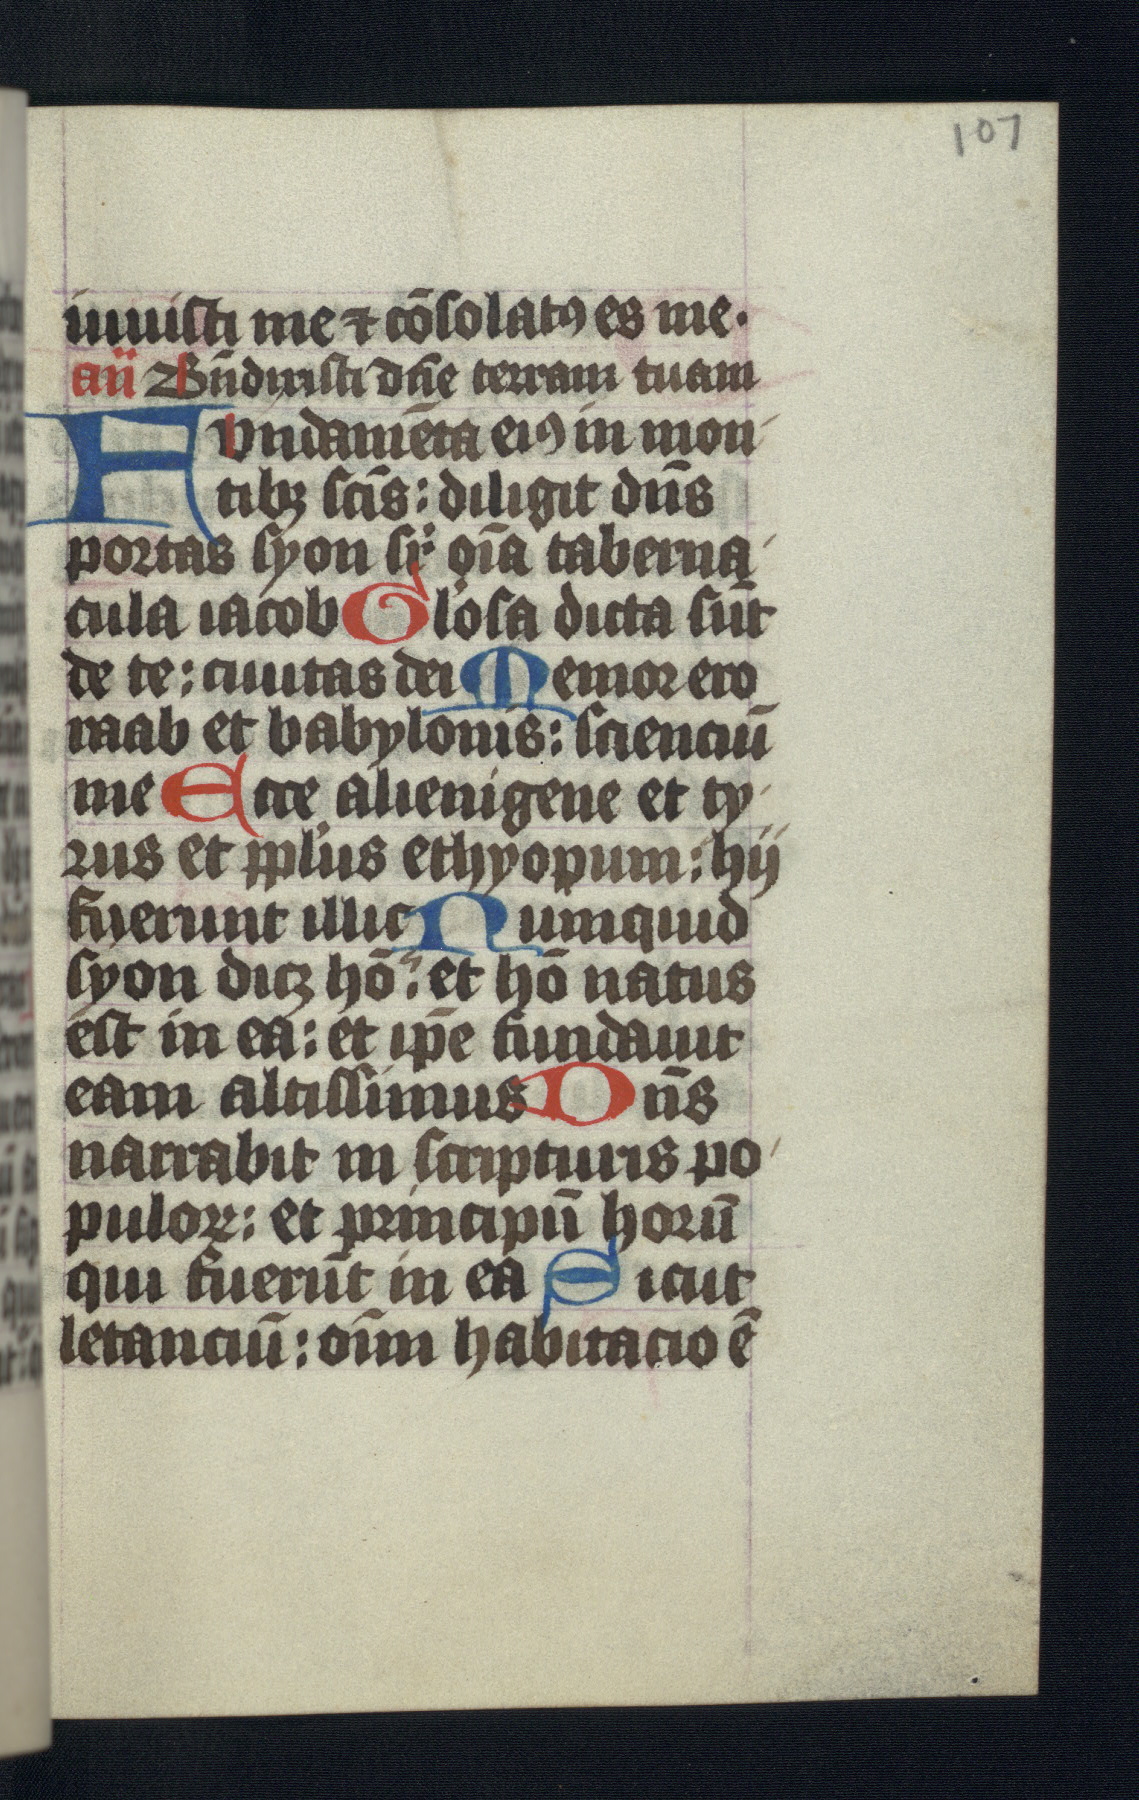 107
iuuisti me ⁊ cōsolatꝰ es me.
añ Bn̄dixisti dn̄e terram tuam
Fundamēta eiꝰ in mon
tibꝫ scīs: diligit dn̄s
portas syon sr̄ oīa taberna
cula iacob Glosa dicta sūt
de te: ciuitas dei Memor ero
raab et babylonis: scienciū
me Ecce alienigene et ty
rus et pplus ethyopum: hij
fuerunt illic Numquid
syon dicꝫ hō: et hō natus
est in ea: et ip̄e fundauit
eam altissimus Dn̄s
narrabit in scripturis po
puloꝝ: et principū horū
qui fuerūt in ea Sicut
letanciū: oīm habitacio ē